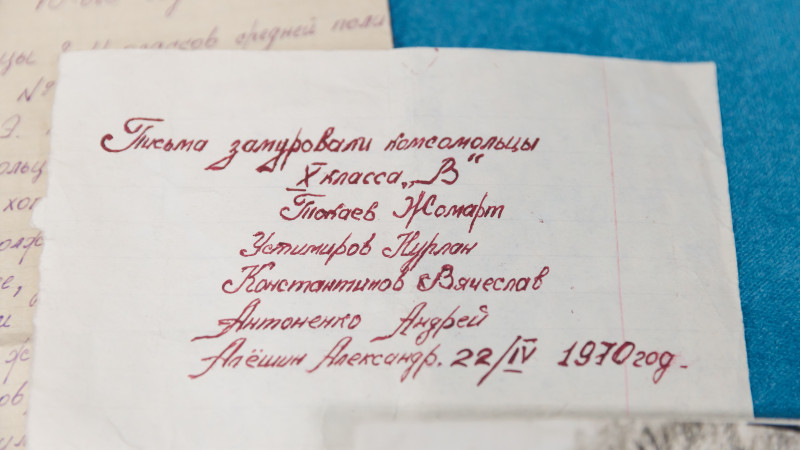 классов средней
№
Письма замуровали комсомольцы
X класса „В“
Токаев Жомарт
Устимиров Нурлан
Константинов Вячеслав
Антоненко Андрей
Алёшин Александр. 22/IV 1970 год.